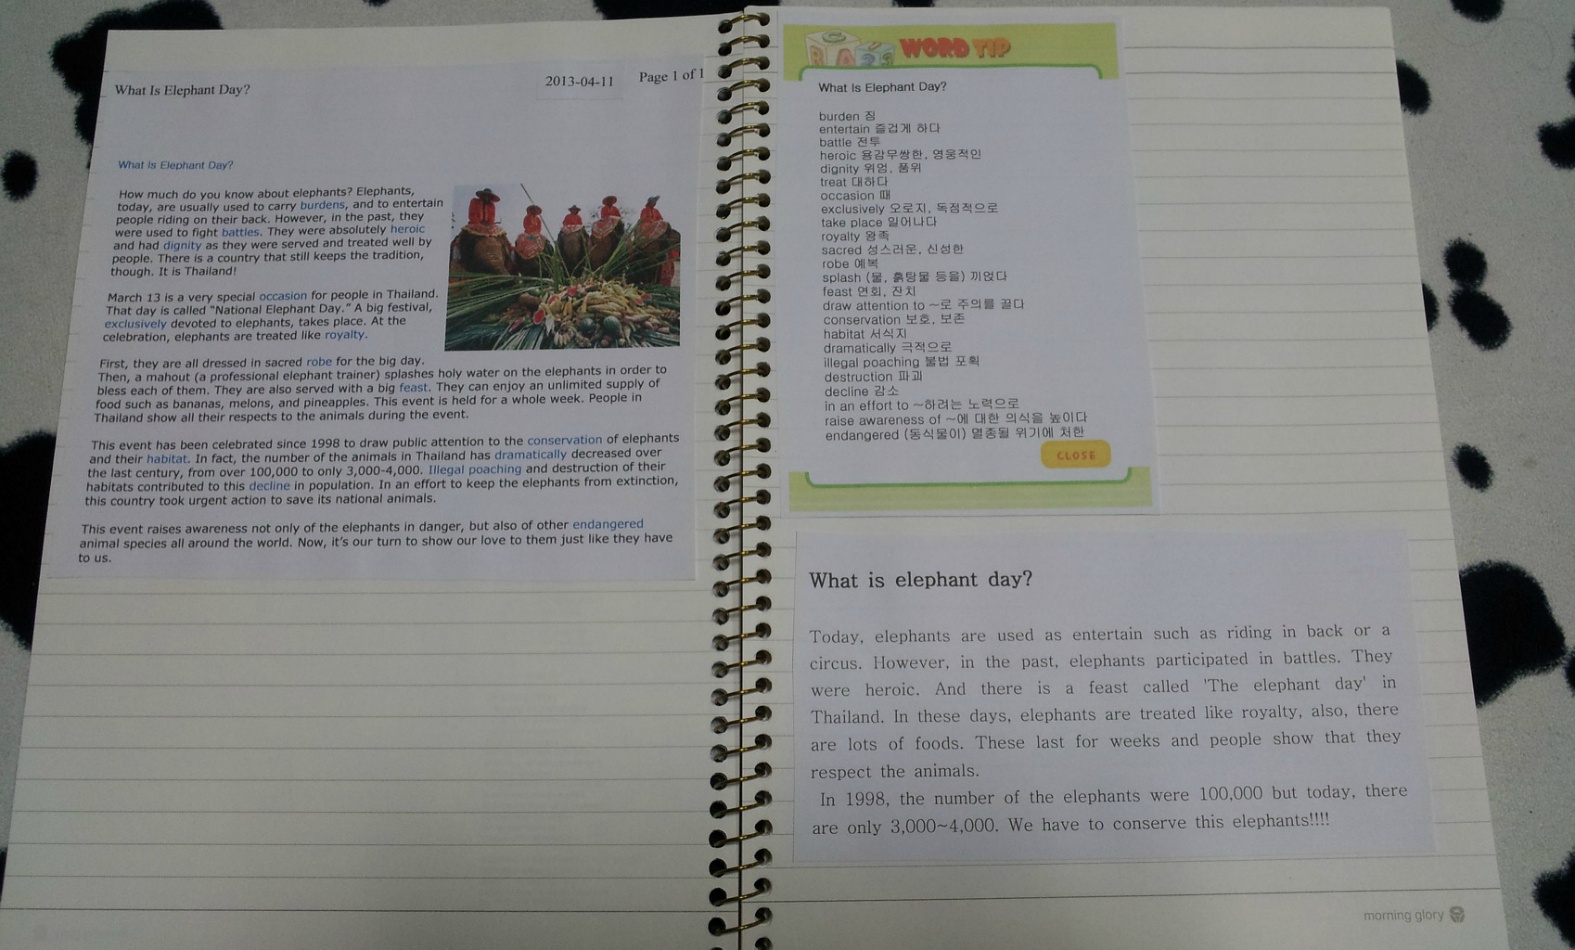 What Is Elephant Day?
2013-04-11
Page 1 of 1
What Is Elephant Day?
How much do you know about elephants? Elephants,
today, are usually used to carry burdens, and to entertain
people riding on their back. However, in the past, they
were used to fight battles. They were absolutely heroic
and had dignity as they were served and treated well by
people. There is a country that still keeps the tradition,
though. It is Thailand!
March 13 is a very special occasion for people in Thailand.
That day is called "National Elephant Day." A big festival,
exclusively devoted to elephants, takes place. At the
celebration, elephants are treated like royalty.
First, they are all dressed in sacred robe for the big day.
Then, a mahout (a professional elephant trainer) splashes holy water on the elephants in order to
bless each of them. They are also served with a big feast. They can enjoy an unlimited supply of
food such as bananas, melons, and pineapples. This event is held for a whole week. People in
Thailand show all their respects to the animals during the event.
This event has been celebrated since 1998 to draw public attention to the conservation of elephants
and their habitat. In fact, the number of the animals in Thailand has dramatically decreased over
the last century, from over 100,000 to only 3,000-4,000. Illegal poaching and destruction of their
habitats contributed to this decline in population. In an effort to keep the elephants from extinction,
this country took urgent action to save its national animals.
This event raises awareness not only of the elephants in danger, but also of other endangered
animal species all around the world. Now, it's our turn to show our love to them just like they have
to us.
WORD TIP
What Is Elephant Day?
burden 짐
entertain 즐겁게 하다
battle 전투
heroic 용감무쌍한, 영웅적인
dignity 위엄, 품위
treat 대하다
occasion 때
exclusively 오로지, 독점적으로
take place 일어나다
royalty 왕족
sacred 성스러운, 신성한
robe 예복
splash (물, 흙탕물 등을) 끼얹다
feast 연회, 잔치
draw attention to ~로 주의를 끌다
conservation 보호, 보존
habitat 서식지
dramatically 극적으로
illegal poaching 불법 포획
destruction 파괴
decline 감소
in an effort to ~하려는 노력으로
raise awareness of ~에 대한 의식을 높이다
endangered (동식물이) 멸종될 위기에 처한
CLOSE
What is elephant day?
Today, elephants are used as entertain such as riding in back or a
circus. However, in the past, elephants participated in battles. They
were heroic. And there is a feast called 'The elephant day' in
Thailand. In these days, elephants are treated like royalty, also, there
are lots of foods. These last for weeks and people show that they
respect the animals.
In 1998, the number of the elephants were 100,000 but today, there
are only 3,000~4,000. We have to conserve this elephants!!!!
morning glory